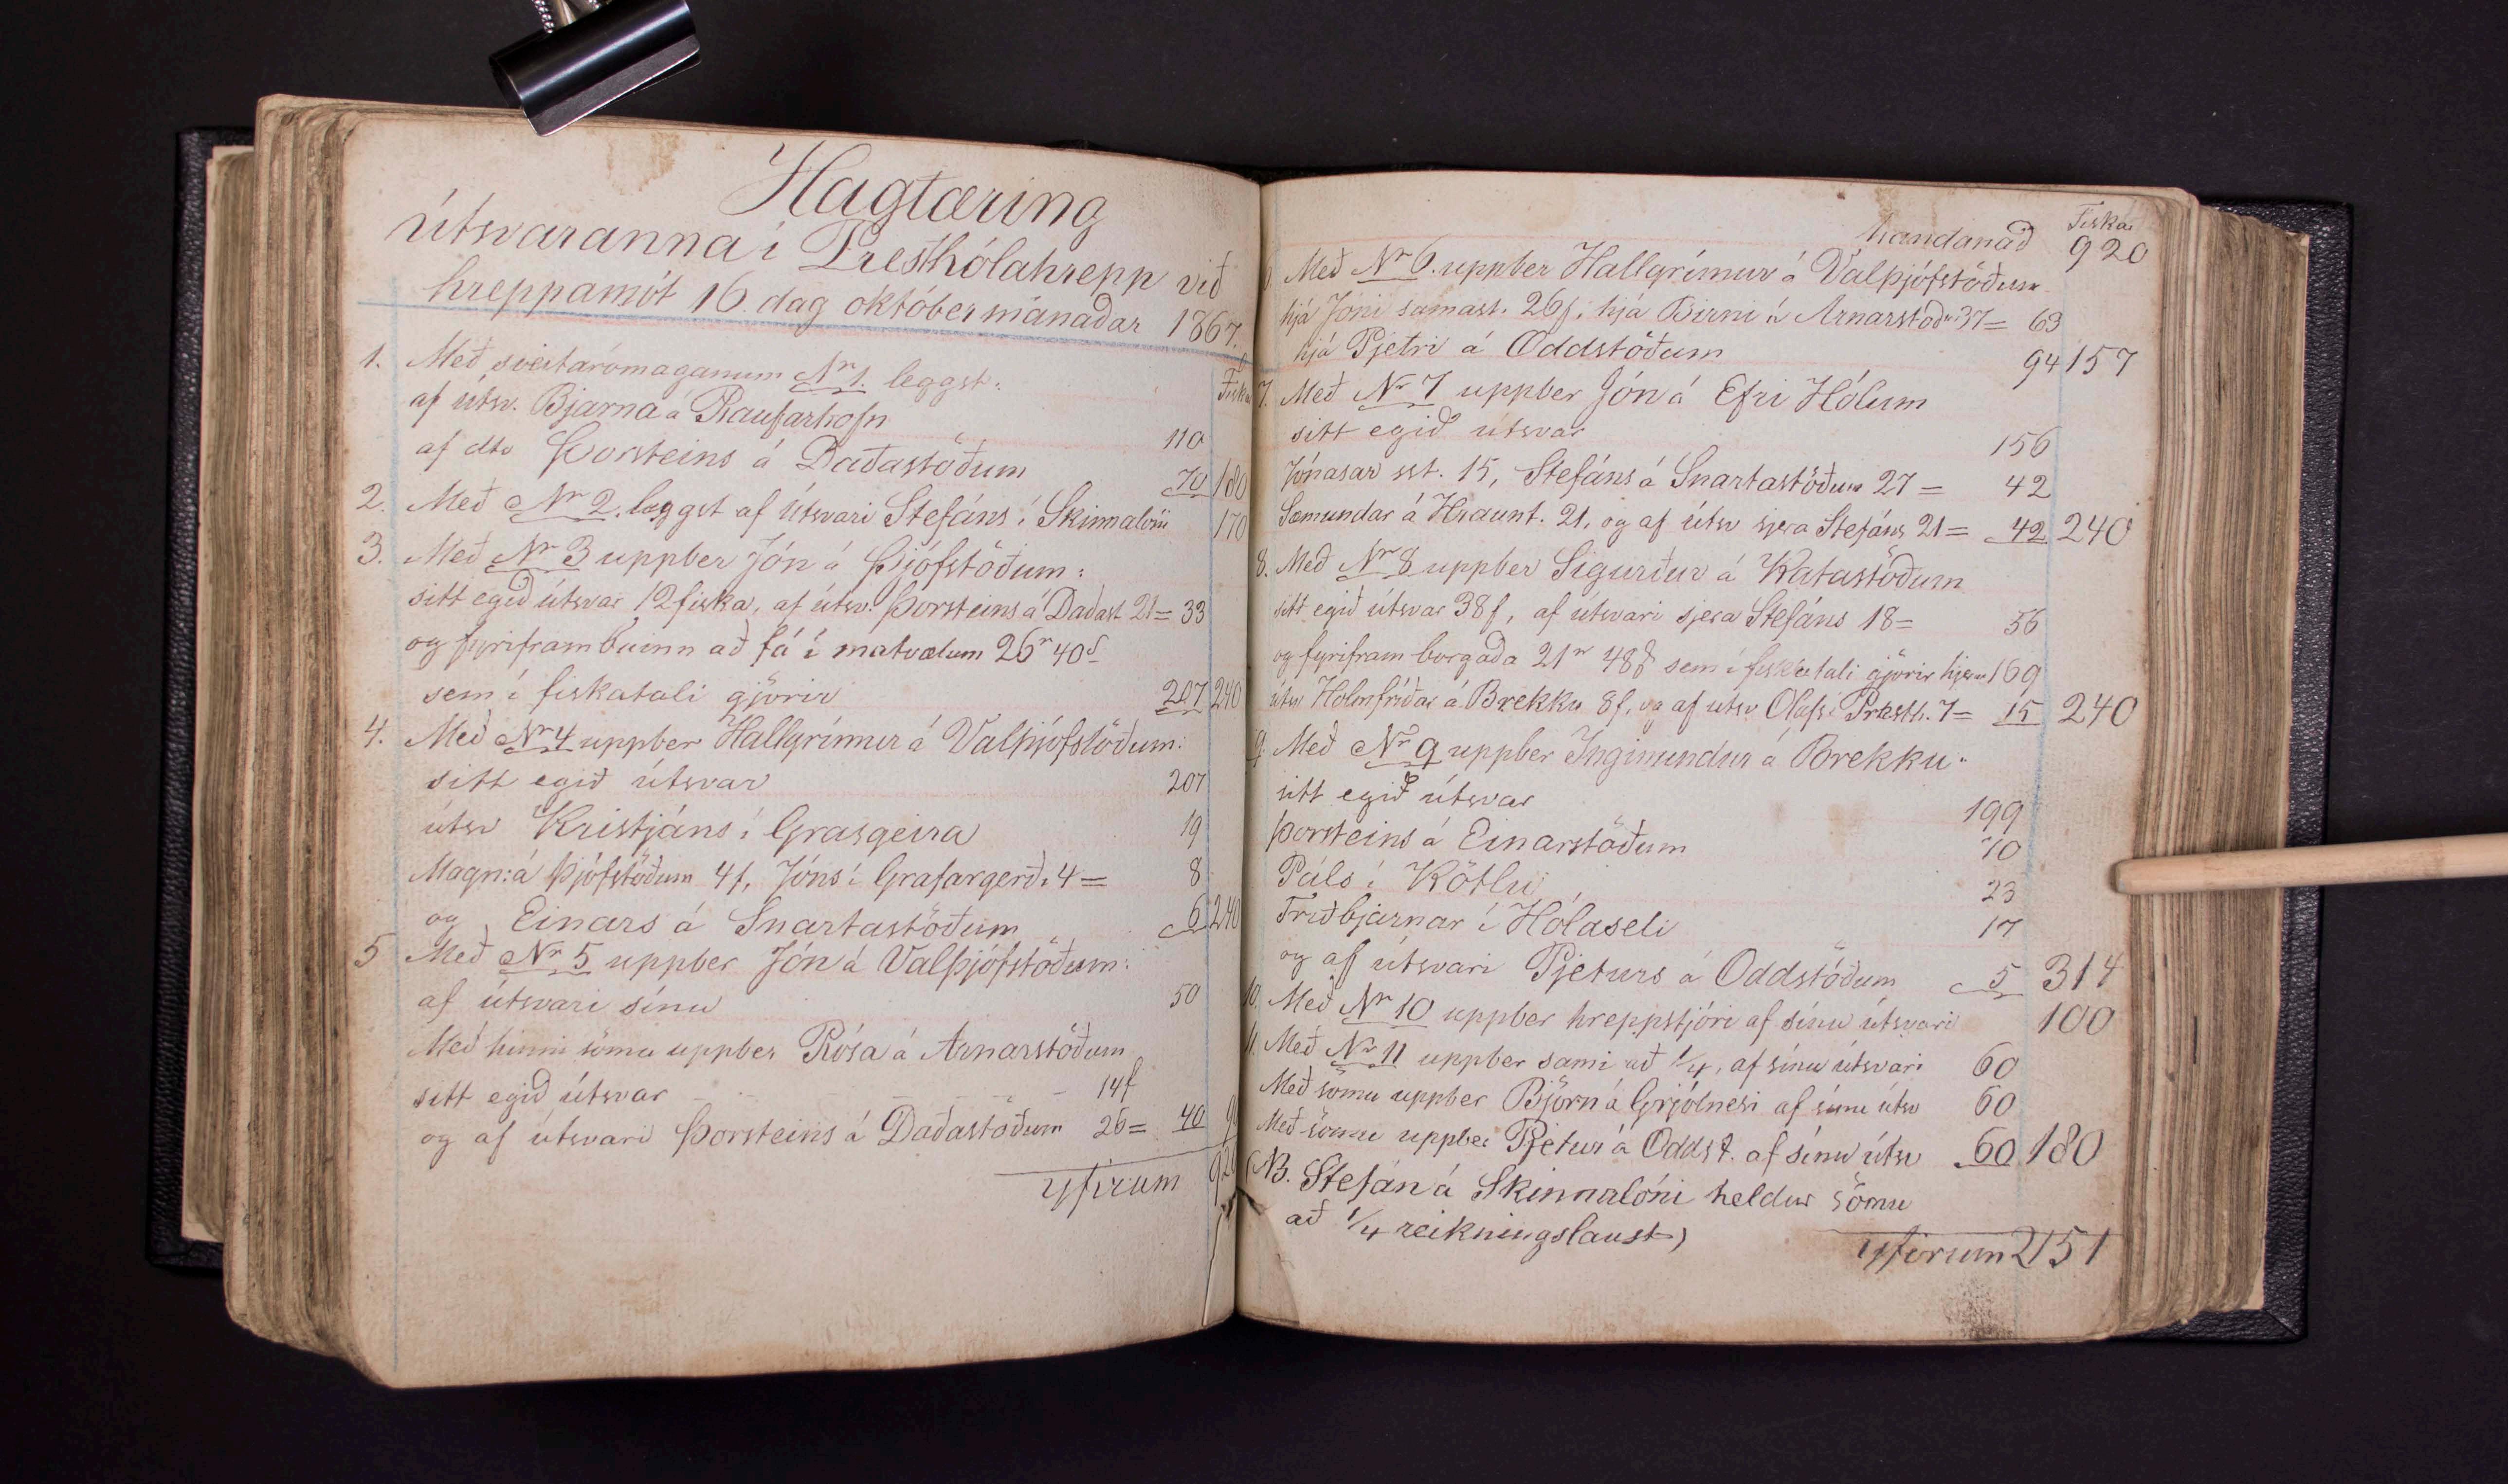 Hagtæring
útsvaranna í Presthólahrepp við
hreppamót 16. dag októbermánaðar 1867.
Fiska
1. Með sveitarómaganum Nr 1. leggst:
af útsv. Bjarna á Raufarhofn 110
af dto Þorsteins á Daðastöðum 70 180
2. Með Nr 2. leggst af útsvari Stefáns í Skinnalóni 170
3. Með Nr 3 uppber Jón á Þjófstöðum:
sitt egið útsvar 12 fiska, af útsv. Þorsteins á Daðast 21= 33
og fyrirfram búinn að fá í matvælum 26r 40s
sem í fiskatali gjörir 207 240
4. Með Nr 4 uppber Hallgrímur á Valþjófstöðum:
sitt egið útsvar 207
útsv Kristjáns í Grasgeira 19
Magn: á Þjófstöðum 4f, Jóns í Grafargerði 4= 8
og Einars á Snartastöðum 6 240
5 Með Nr 5 uppber Jón á Valþjófstöðum:
af útsvari sínu 50
Með hinni sömu uppber Rósa á Arnarstöðum
sitt egið útsvar 14f
og af útsvari Þorsteins á Daðastöðum 26= 40 90
yfirum 920
Fiska
handanað 920
Með Nr 6. uppber Hallgrímur á Valþjófstöðum
hjá Jóni samast. 26f, hjá Birni á Arnarstöðu 37= 63
hjá Pjetri á Oddstöðum 94 157
7. Með Nr 7 uppber Jón á Efri Hólum
sitt egið útsvar 156
Jónasar sst. 15, Stefáns á Snartastöðum 27= 42
Sæmundar á Hraunt. 21, og af útsv sjera Stefáns 21= 42 240
8. Með Nr 8 uppber Sigurður á Katastöðum
sitt egið útsvar 38f, af útsvari sjera Stefáns 18= 56
og fyrirfram borgaða 21r 48s sem í fiskatali gjörir hjer 169
útsv Hólmfríðar á Brekku 8f, og af útsv Olafs í Presth. 7= 15 240
9. Með Nr 9 uppber Ingimundur á Brekku:
sitt egið útsvar 199
Þorsteins á Einarstöðum 70
Páls í Kötlu 23
Friðbjarnar í Hólaseli 17
og af útsvari Pjeturs á Oddstöðum 5 314
10. Með Nr 10 uppber hreppstjóri af sínu útsvari 100
11. Með Nr 11 uppber sami að 1/4, af sínu útsvari 60
Með sömu uppber Björn á Grjótnesi af sínu útsv 60
Með sömu uppber Pjetur á Oddst. af sínu útsv 60 180
(NB. Stefán á Skinnalóni heldur sömu
að 1/4 reikningslaust)
yfirum 2151